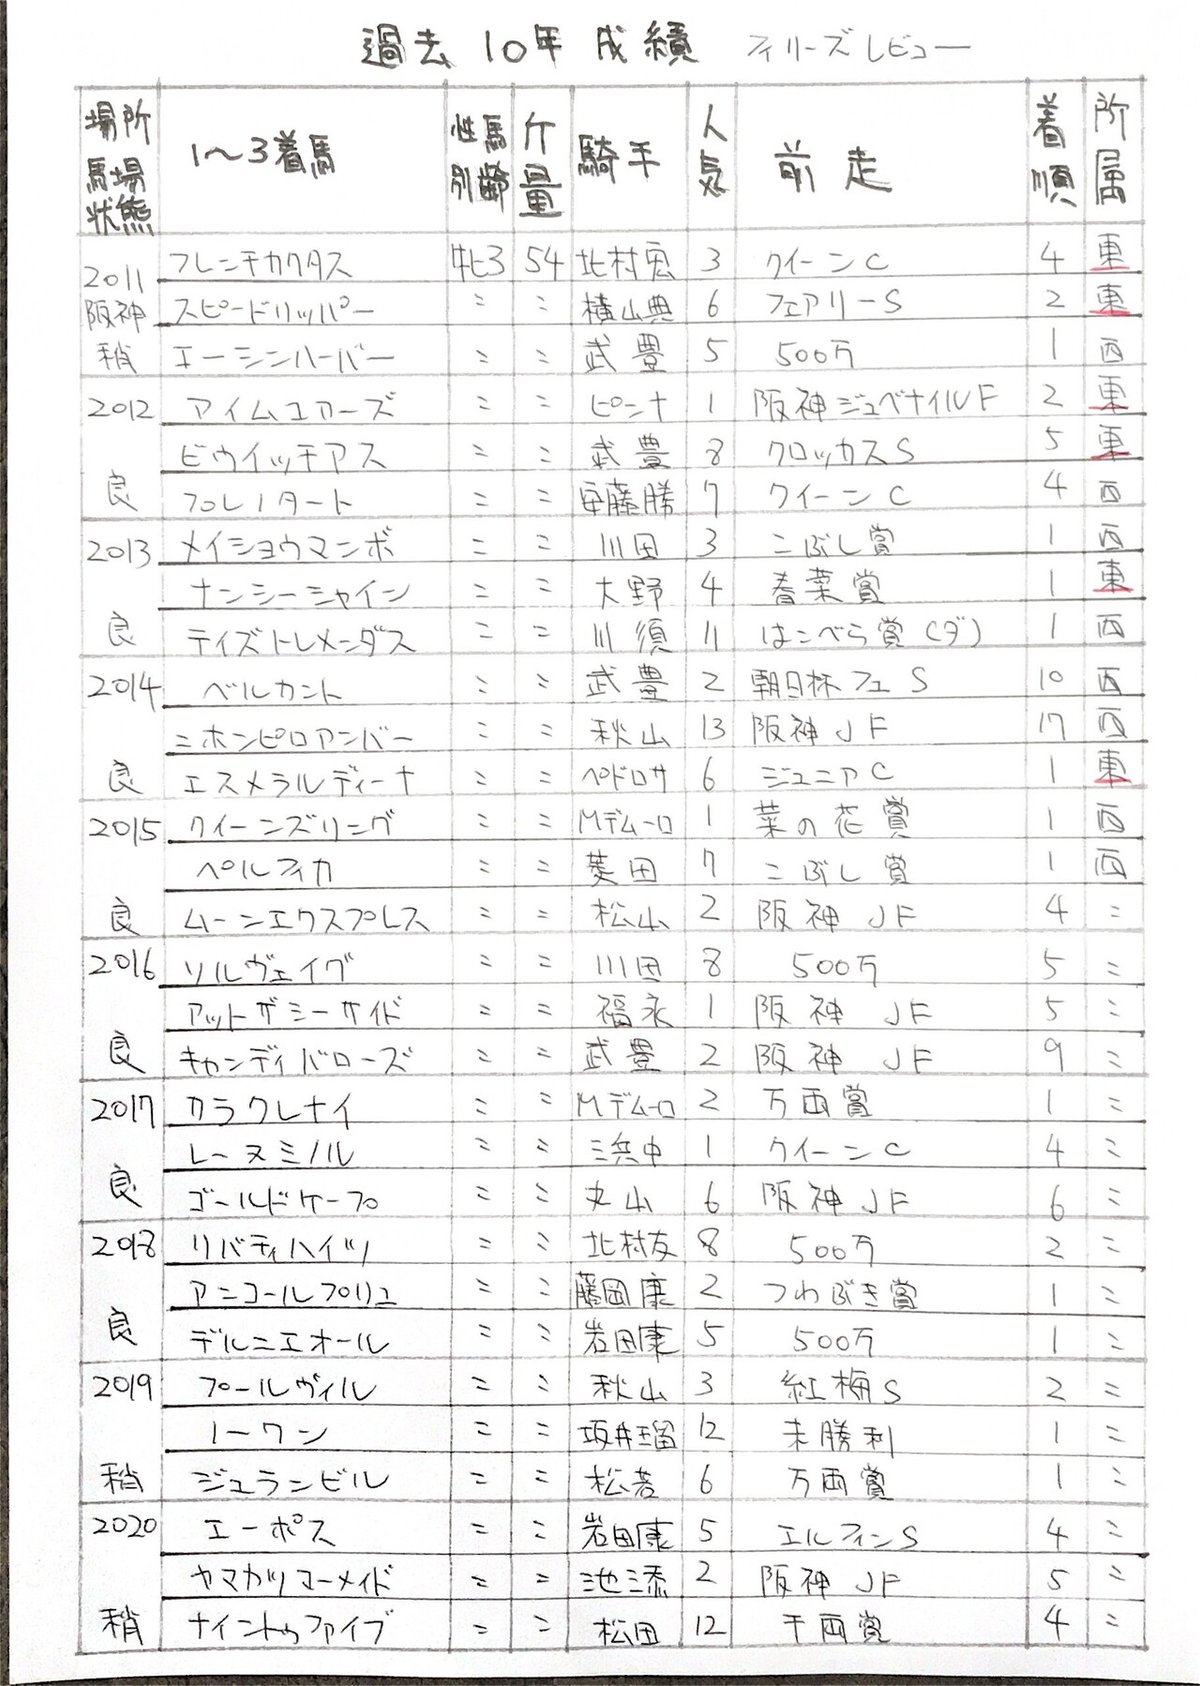 過去10年成績 フィリーズレビュー
場所 馬場状態 1〜3着馬 性別 馬齢 斤量 騎手 人気 前走 着順 所属
2011 フレンチカクタス 牝3 54 北村宏 3 クイーンC 4 東
阪神 スピードリッパー 〃 〃 横山典 6 フェアリーS 2 東
稍 エーシンハーバー 〃 〃 武豊 5 500万 1 西
2012 アイムユアーズ 〃 〃 ピンナ 1 阪神ジュベナイルF 2 東
ビウイッチアス 〃 〃 武豊 8 クロッカスS 5 東
良 プレノタート 〃 〃 安藤勝 7 クイーンC 4 西
2013 メイショウマンボ 〃 〃 川田 3 こぶし賞 1 西
ナンシーシャイン 〃 〃 大野 4 春菜賞 1 東
良 ティズトレメンダス 〃 〃 川須 11 はこべら賞(ダ) 1 西
2014 ベルカント 〃 〃 武豊 2 朝日杯フュS 10 西
ニホンピロアンバー 〃 〃 秋山 13 阪神JF 17 西
良 エスメラルディーナ 〃 〃 ペドロサ 6 ジュニアC 1 東
2015 クイーンズリング 〃 〃 Mデムーロ 1 菜の花賞 1 西
ペルフィカ 〃 〃 菱田 7 こぶし賞 1 西
良 ムーンエクスプレス 〃 〃 松山 2 阪神JF 4 〃
2016 ソルヴェイグ 〃 〃 川田 8 500万 5 〃
アットザシーサイド 〃 〃 福永 1 阪神JF 5 〃
良 キャンディバローズ 〃 〃 武豊 2 阪神JF 9 〃
2017 カラクレナイ 〃 〃 Mデムーロ 2 万両賞 1 〃
レーヌミノル 〃 〃 浜中 1 クイーンC 4 〃
良 ゴールドケープ 〃 〃 丸山 6 阪神JF 6 〃
2018 リバティハイツ 〃 〃 北村友 8 500万 2 〃
アンコールプリュ 〃 〃 藤岡康 2 つわぶき賞 1 〃
良 デルニエオール 〃 〃 岩田康 5 500万 1 〃
2019 プールヴィル 〃 〃 秋山 3 紅梅S 2 〃
ノーワン 〃 〃 坂井瑠 12 未勝利 1 〃
稍 ジュランビル 〃 〃 松若 6 万両賞 1 〃
2020 エーポス 〃 〃 岩田康 5 エルフィンS 4 〃
ヤマカツマーメイド 〃 〃 池添 2 阪神JF 5 〃
稍 ナイントゥファイブ 〃 〃 松田 12 千両賞 4 〃